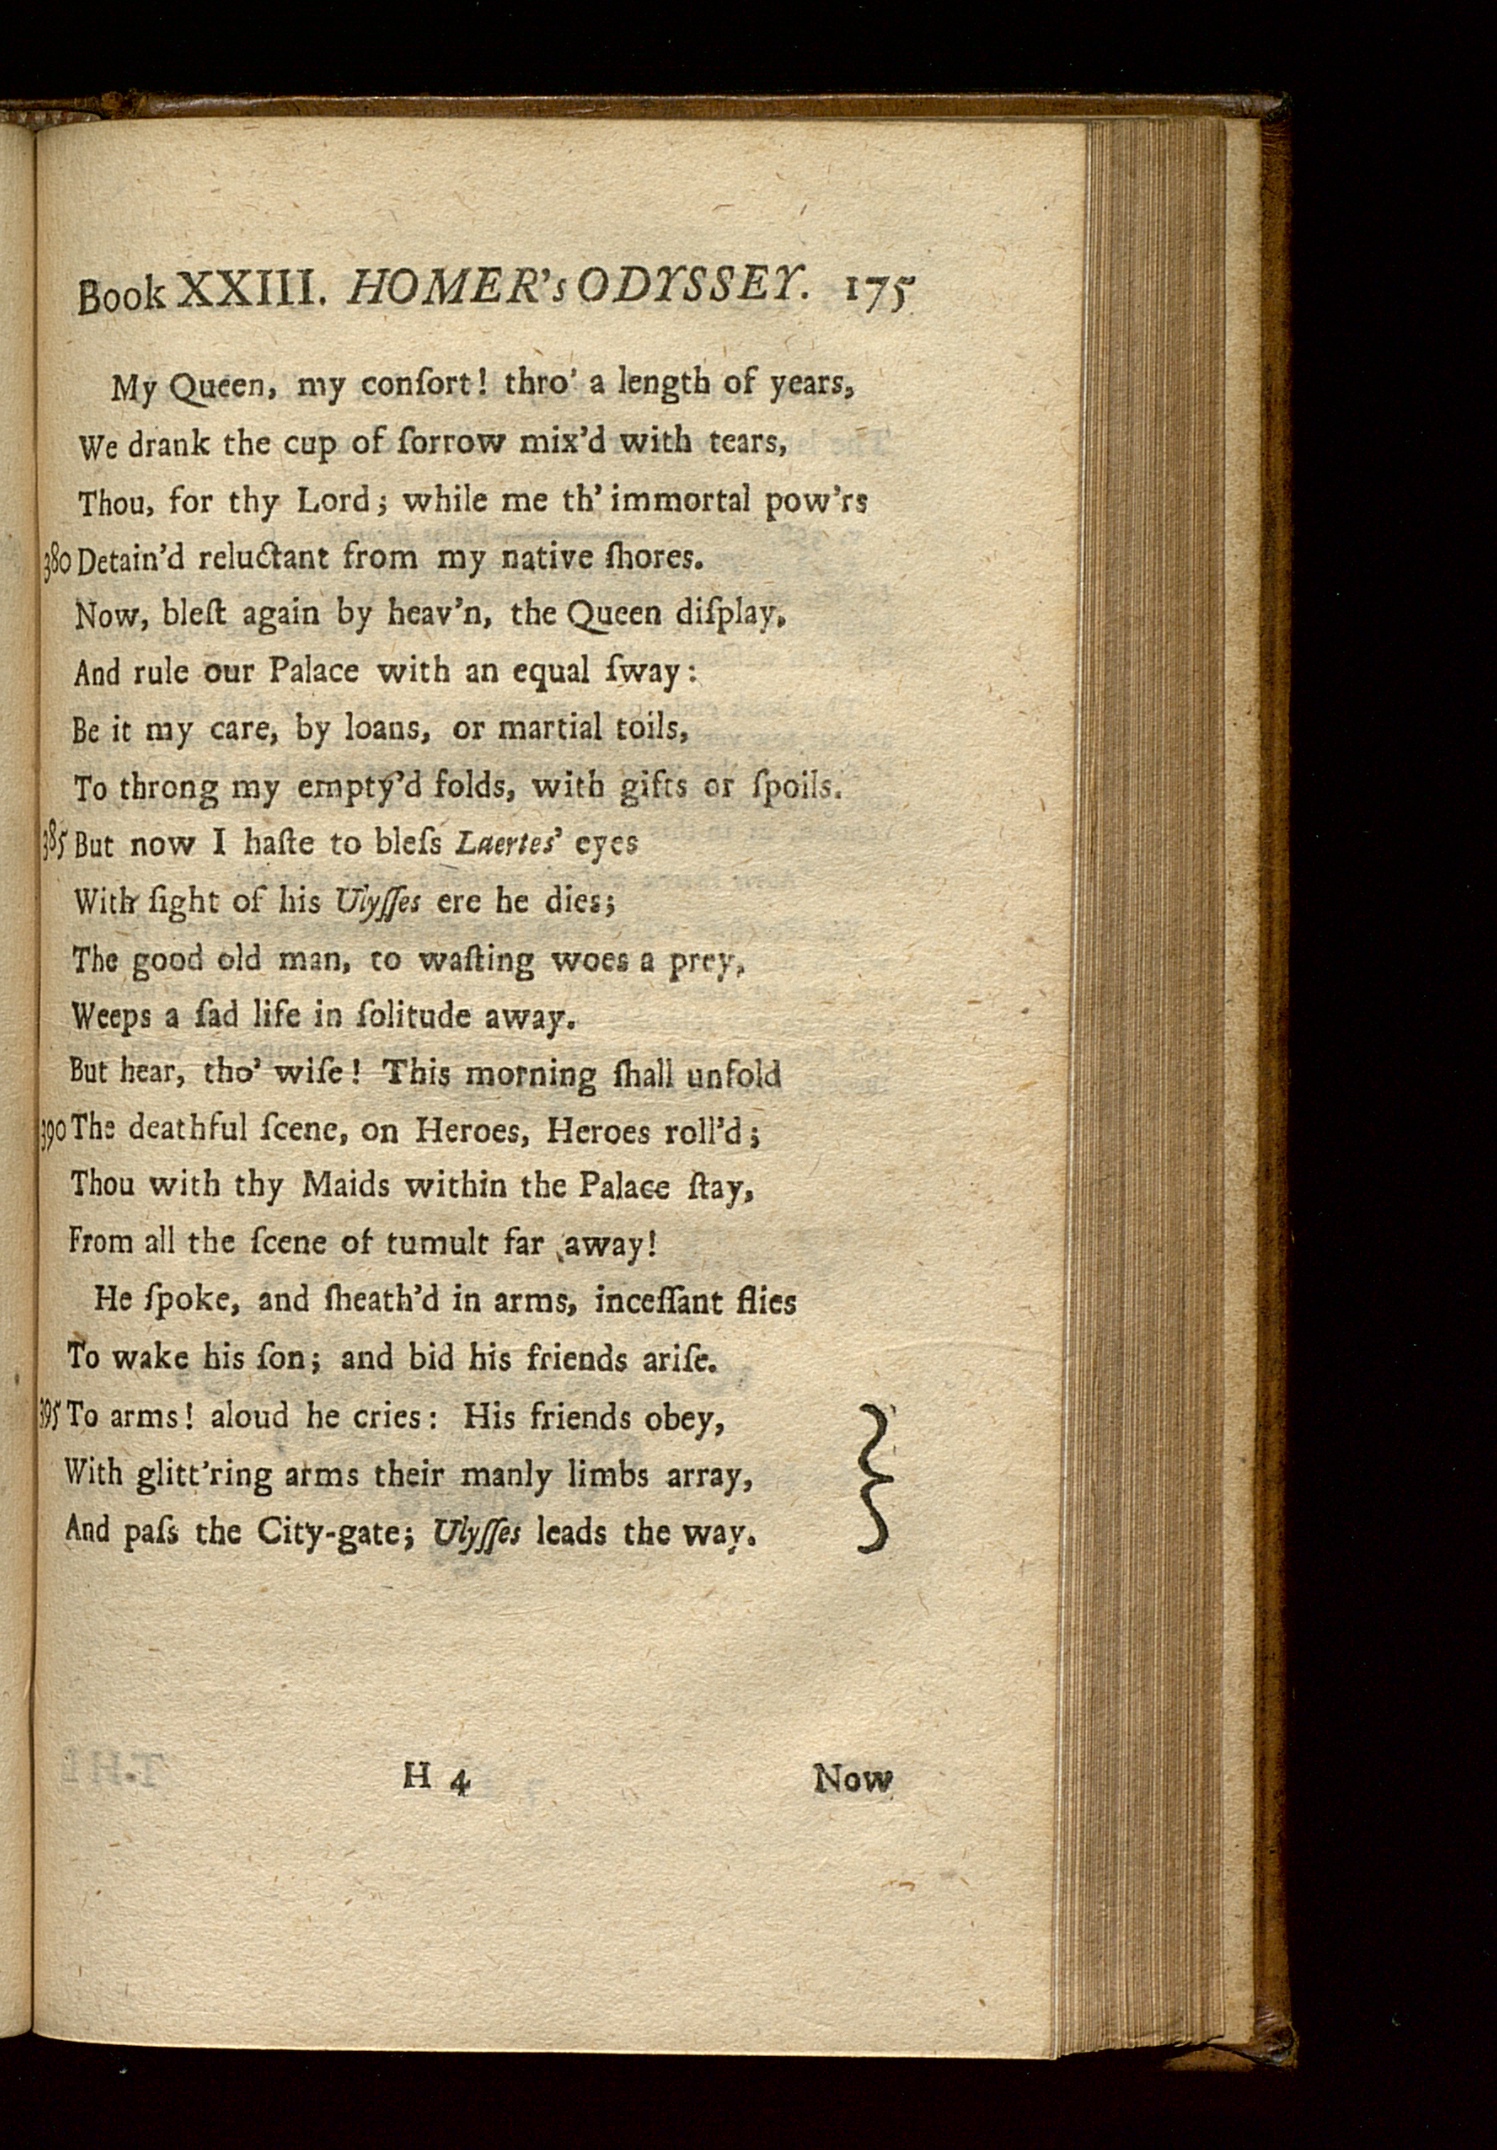 Book XXIII. HOMER's ODYSSEY. 175
My Queen, my conſort! thro' a length of years,
We drank the cup of ſorrow mix'd with tears,
Thou, for thy Lord; while me th' immortal pow'rs
380 Detain'd reluctant from my native ſhores.
Now, bleſt again by heav'n, the Queen diſplay,
And rule our Palace with an equal ſway:
Be it my care, by loans, or martial toils,
To throng my empty'd folds, with gifts or ſpoils.
385 But now I haſte to bleſs Laertes' eyes
With ſight of his Ulyſſes ere he dies;
The good old man, to waſting woes a prey,
Weeps a ſad life in ſolitude away.
But hear, tho' wiſe! This morning ſhall unfold
390 The deathful ſcene, on Heroes, Heroes roll'd;
Thou with thy Maids within the Palace ſtay,
From all the ſcene of tumult far away!
He ſpoke, and ſheath'd in arms, inceſſant flies
To wake his ſon; and bid his friends ariſe.
395 To arms! aloud he cries: His friends obey,
With glitt'ring arms their manly limbs array,
And paſs the City-gate; Ulyſſes leads the way.
H 4 Now